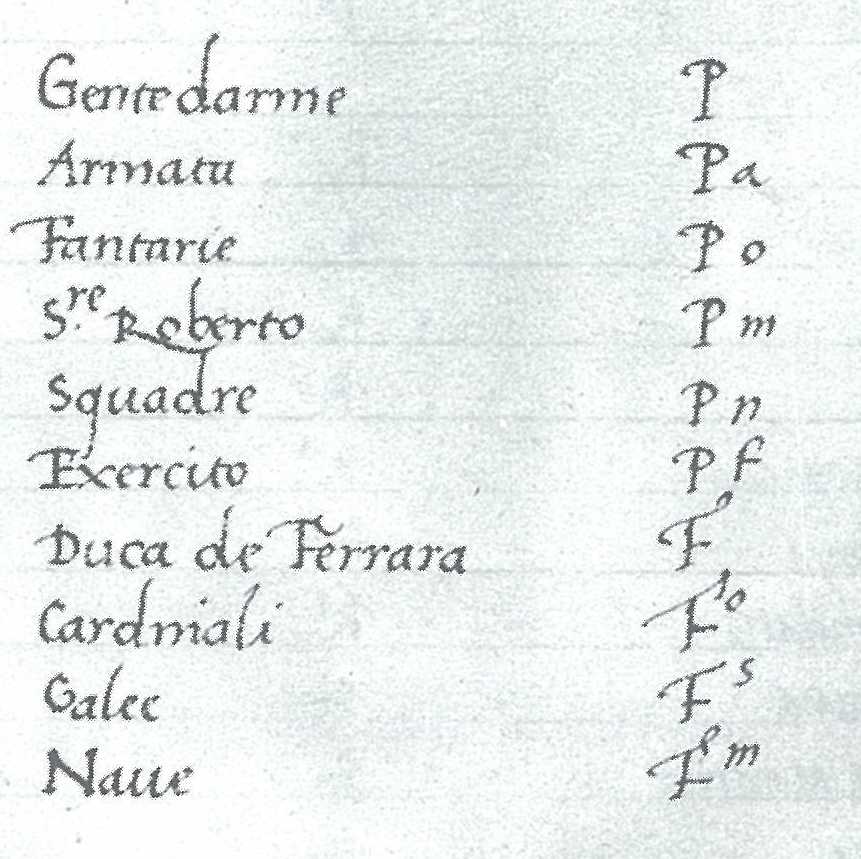 Gentedarme P
Armata Pa
Fantarie Po
S.re Roberto Pm
Squadre Pn
Exercito Pf
Duca de Ferrara F°
Cardinali F10
Galee Fs
Naue Fem